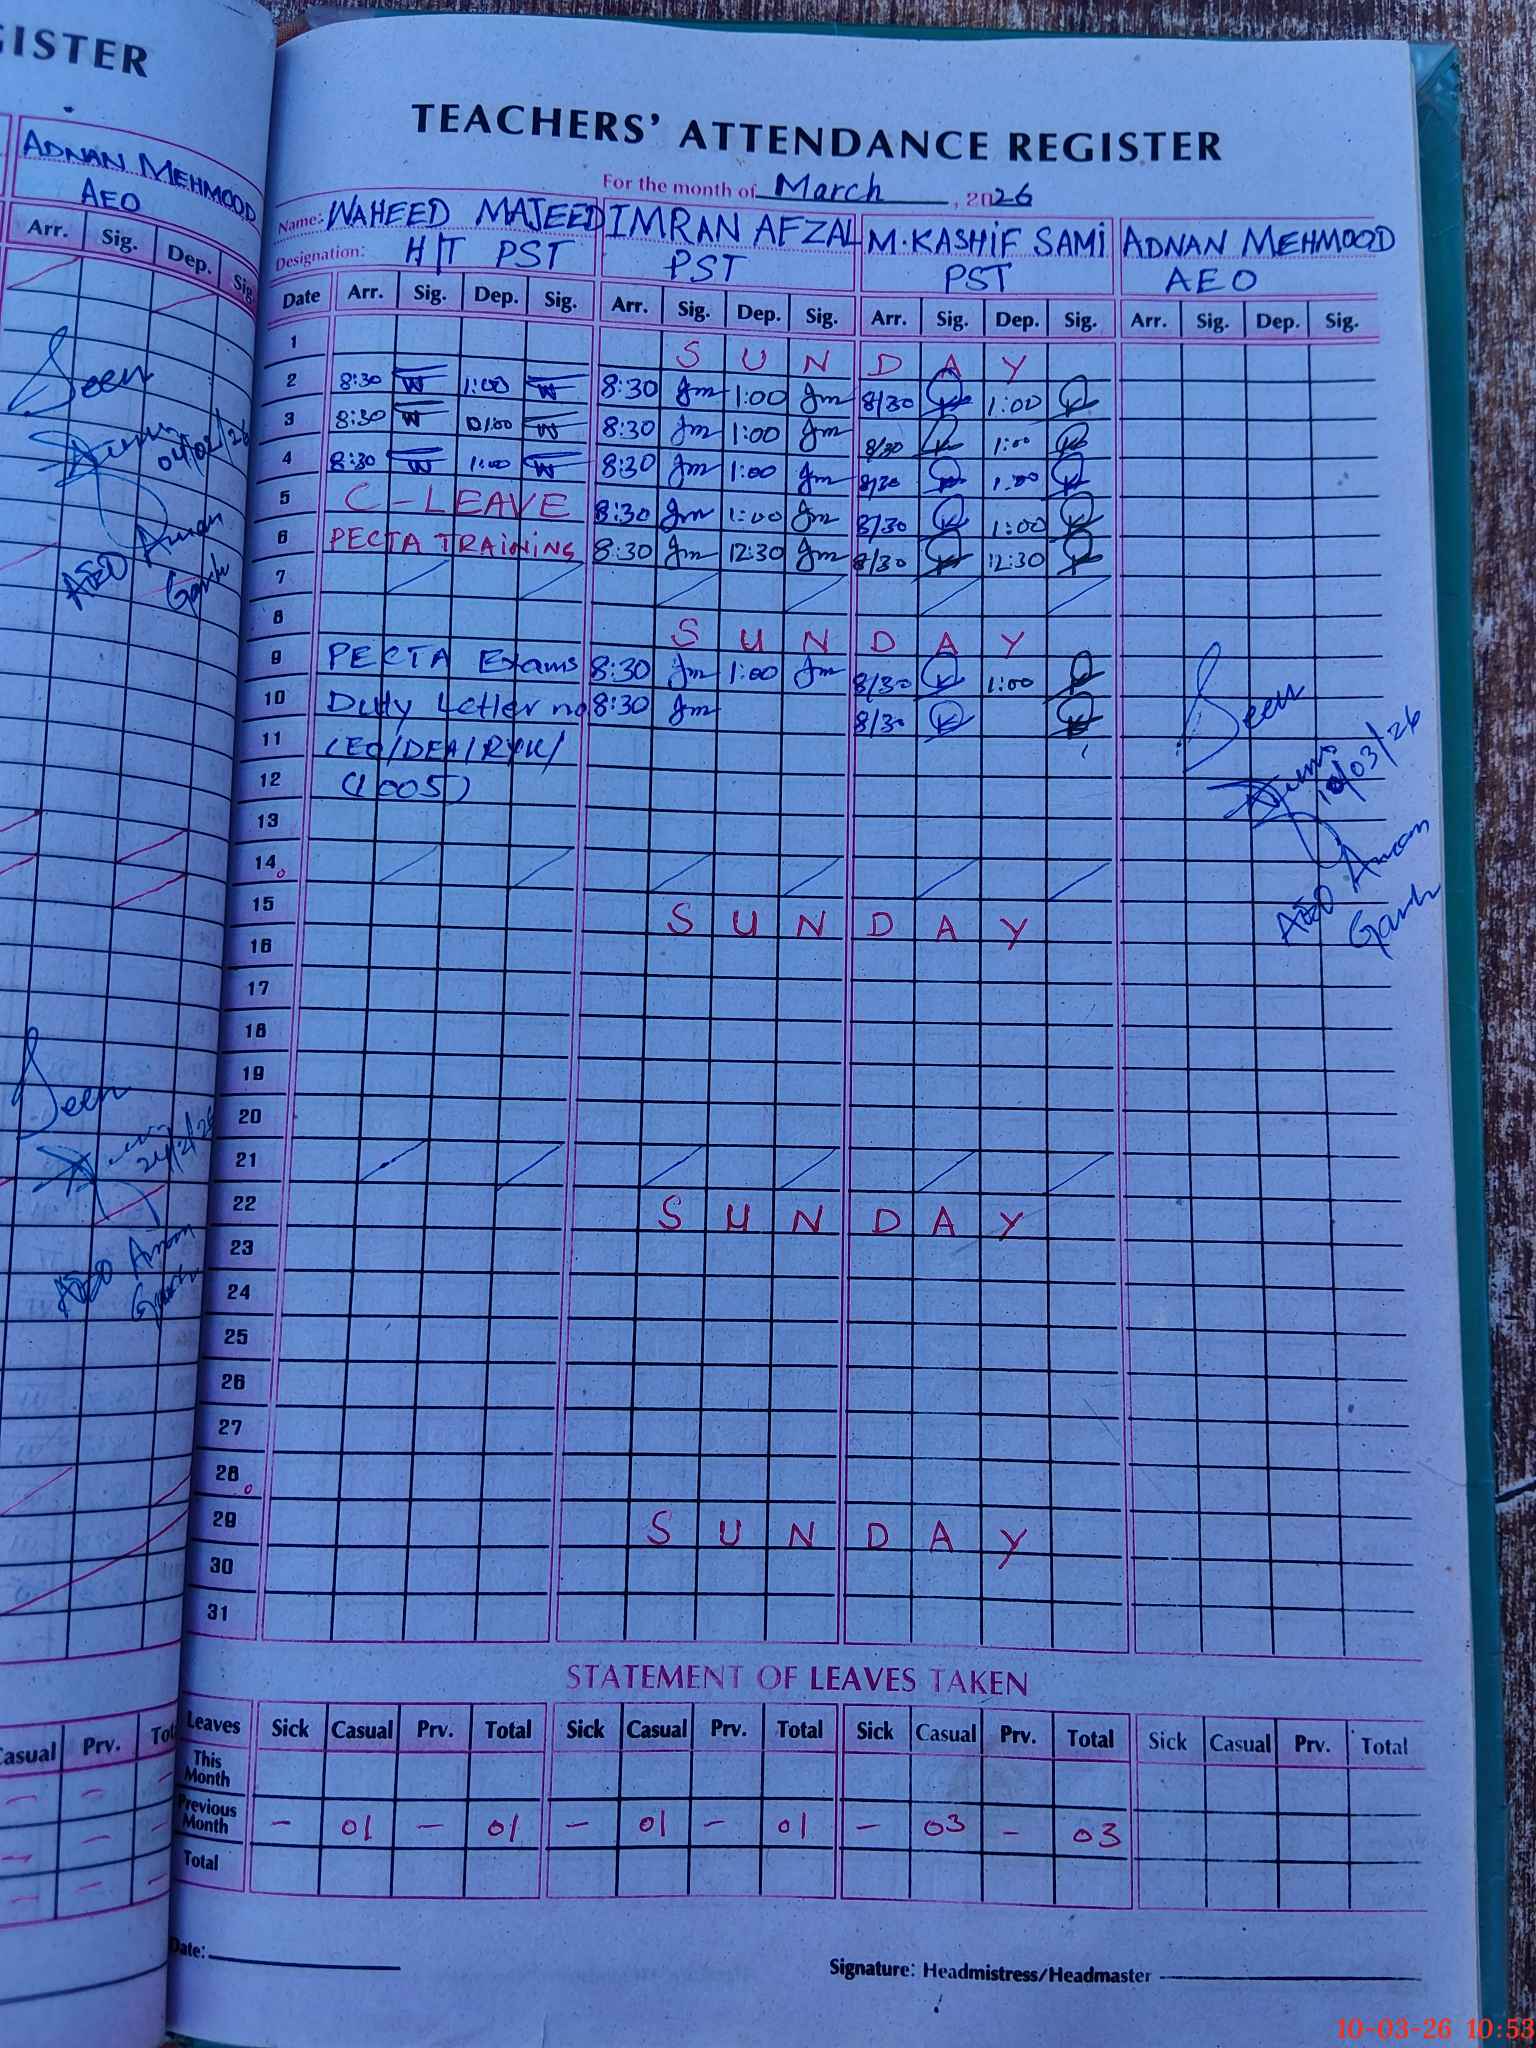 GISTER
ADNAN MEHMOOD
AEO
Arr. Sig. Dep. Sig.
Seen
04/02/26
AEO Aman
Garh
Seen
24/2/26
AEO Aman
Garh
Casual Prv. Tot
TEACHERS' ATTENDANCE REGISTER
For the month of March, 2026
Name: WAHEED MAJEED IMRAN AFZAL M.KASHIF SAMI ADNAN MEHMOOD
Designation: H/T PST PST PST AEO
Date Arr. Sig. Dep. Sig. Arr. Sig. Dep. Sig. Arr. Sig. Dep. Sig. Arr. Sig. Dep. Sig.
1 S U N D A Y
2 8:30 W 1:00 W 8:30 Jm 1:00 Jm 8/30 1:00
3 8:30 W 01:00 W 8:30 Jm 1:00 Jm 8/30 1:00
4 8:30 W 1:00 W 8:30 Jm 1:00 Jm 8/30 1:00
5 C-LEAVE 8:30 Jm 1:00 Jm 8/30 1:00
6 PECTA TRAINING 8:30 Jm 12:30 Jm 8/30 12:30
7
8 S U N D A Y
9 PECTA Exams 8:30 Jm 1:00 Jm 8/30 1:00
10 Duty Letter no 8:30 Jm 8/30
11 CEO/DEA/RYK/
12 (1005)
13
14
15 S U N D A Y
16
17
18
19
20
21
22 S U N D A Y
23
24
25
26
27
28
29 S U N D A Y
30
31
Seen
10/03/26
AEO Aman
Garh
STATEMENT OF LEAVES TAKEN
Leaves Sick Casual Prv. Total Sick Casual Prv. Total Sick Casual Prv. Total Sick Casual Prv. Total
This Month
Previous Month - 01 - 01 - 01 - 01 - 03 - 03
Total
Date:
Signature: Headmistress/Headmaster
10-03-26 10:53